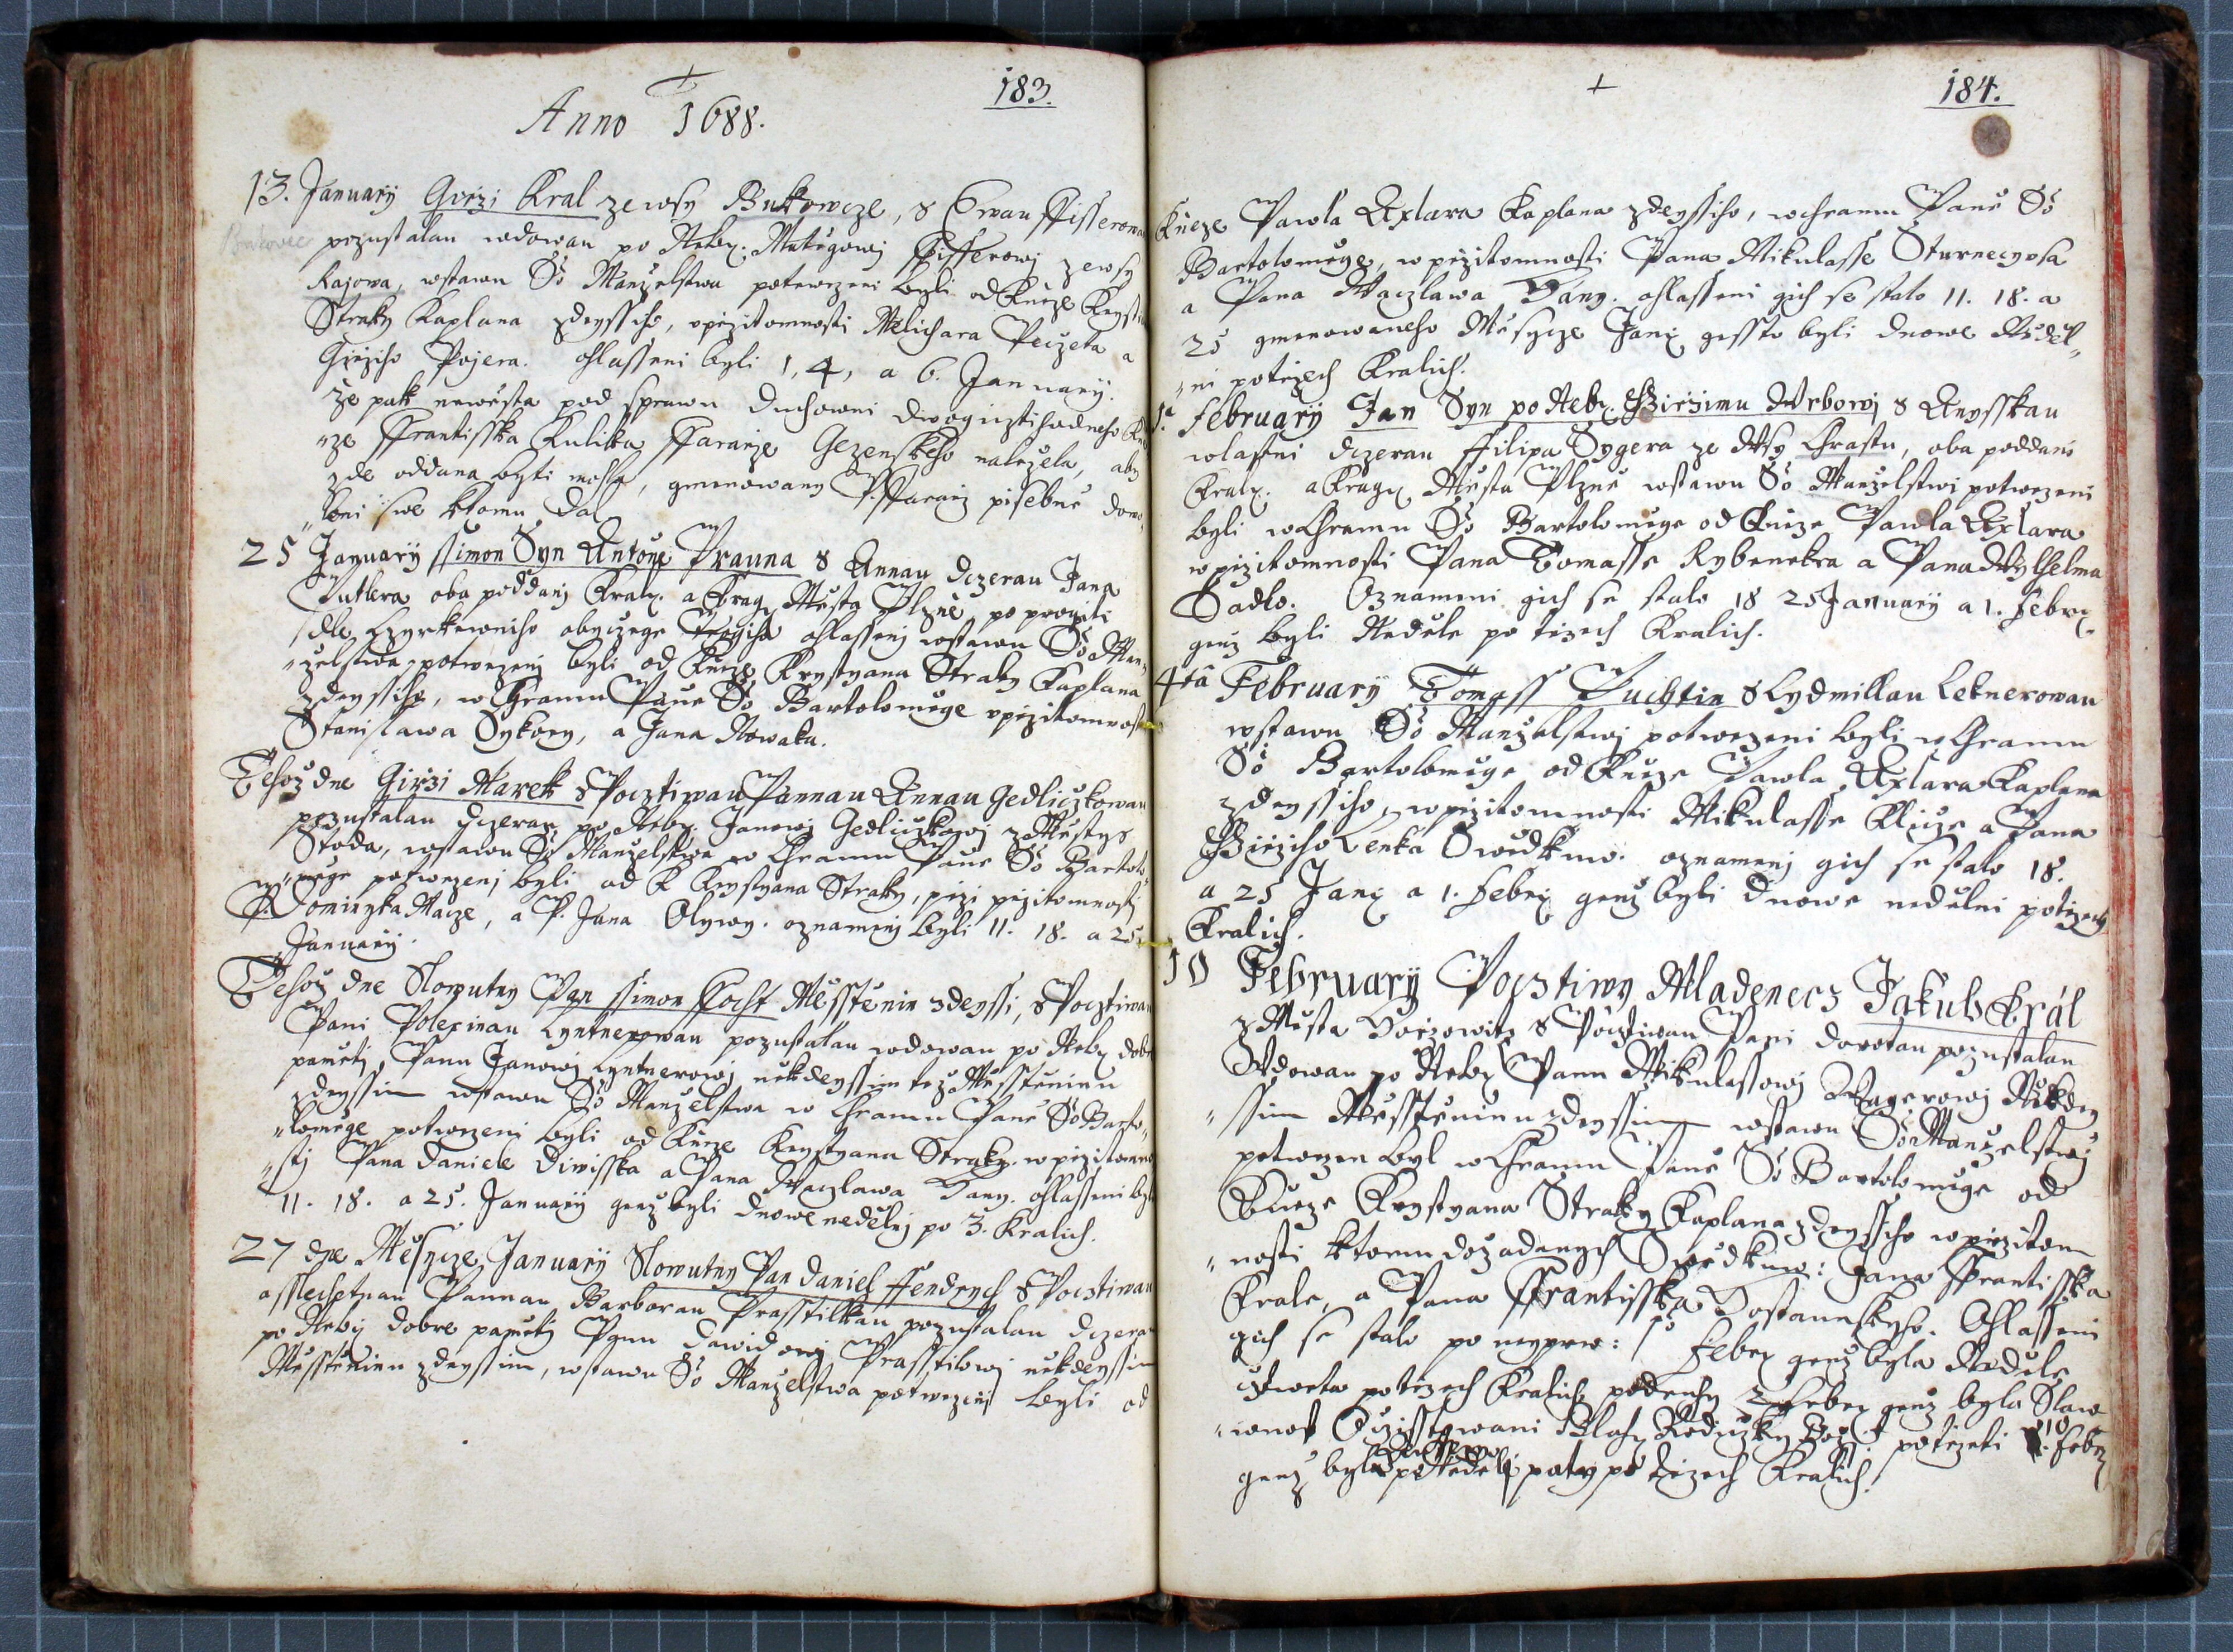 183.
Anno 1688.
13. January Girzi Kral ze wsy Bukowcze, s Ewau Fisserowau
Bukovec
pozustalau wdowau po Neb. Matiegowi Fisserowi z ewsy
Rajowa, wstawu S° Manzelstwa potwrzeni byli od Knieze Krystyana
Straky Kaplana zdeyssiho, v przitomnosti Melichara Peczeta a
Girziho Pojera. ohlasseni byli 1, 4, a 6. January.
ze pak newiesta pod sprawu Duchowni Dwogictihodneho Knie
ze Frantisska Kulika Fararze Gezenskeho nalezela, aby
zde oddana byti mohla, gmenowany P. Fararz pisebne dowo
leni swe ktomu dal
25 January ssimon Syn Antone Prauna s Annau dczerau Jana
Putlera oba poddani Kral. a Krag. Miesta Plzne po prwgiti
dle Czyrkewniho obyczege ohlasseni wstawu S° Man
zelstwa potwrzeni byli od Knieze Krystyana Straky Kaplana
zdeyssiho, w Chramu Panie S° Bartolomiege v przitomnosti
Stanislawa Sykory, a Jana Nowaka.
Tehoz dne Girzi Marek s Pocztiwau Pannau Annau Gedliczkowau
pozustalau dczerau po Neb. Janowi Gedliczkowi z Miestys
Stoda, wstawu S° Manzelstwa w Chramu Panie S° Bartolo
miege potwrzeni byli od K Krystyana Straky, przi przitomnosti
P. Dominyka Macze, a P. Jana Olywy. oznameni byli 11. 18. a 25.
January.
Tehoz dne Slowutny Pan ssimon Focht Miesstienin zdeyssi, s Pocztiwau
Pani Polexinau Lyntnerowau pozustalau wdowau po Neb. dobre
pamieti, Panu Janowi Lyntnerowi niekdeyssim tez Miesstieninu
zdeyssim wstawu S° Manzelstwa w Chramu Panie S° Barto
lomiege potwrzeni byli od Knieze Krystyana Straky. w przitomno
sti Pana Daniele Diwisska a Pana Waczlawa Hany. ohlasseni byli
11. 18. a 25. January genz byli dnowe nedielni po 3. Kralich.
27 dne Miesycze January Slowutny Pan Daniel Fendrych s Pocztiwau
a sslechetnau Pannau Barborau Prasstilkau pozustalau dczerau
po Neby dobre pamieti Panu Dawidowi Prasstilowi niekdeyssim
Miesstieninu zdeyssim, wstawu S° Manzelstwa potwrzeni byli od
184.
Knieze Pawla Axlara Kaplana zdeyssiho, w chramu Panie S°
Bartolomiege, w przitomnosti Pana Mikulasse Sturnecgosa
a Pana Waczlawa Hany. ohlasseni gich se stalo 11. 18. a
25 gmenowaneho Miesycze Jan. gessto byli dnowe Nediel
ni potrzech Kralich.
1. February Jan Syn po Neb. Girzimu Wrbowi s Anysskau
wlastni dczerau Filipa Sygera ze Wsy Chrastu, oba poddani
Kral. a Krag. Miesta Plzne wstawu S° Manzelstwi potwrzeni
byli w Chramu S° Bartolomiege od Knieze Pawla Axlara
w przitomnosti Pana Tomasse Rybenekra a Pana Wylhelma
Sadlo. Oznameni gich se stalo 18 25 January a 1. Febr.
genz byli Nediele po trzech Kralich.
4ta February Tomass Puchtin s Lydmillau Letnerowau
wstawu S° Manzelstwi potwrzeni byli w Chramu
S° Bartolomiege od Knieze Pawla Axlara Kaplana
zdeyssiho, w przitomnosti Mikulasse Klicze a Pana
Girziho Lenka Swiedkuw. oznameni gich se stalo 18.
a 25 Jan. a 1. Febr. genz byli dnowe nedielni potrzech
Kralich.
10 February Pocztiwy Mladenecz Jakub Král
z Miesta Horzowicz s Pocztiwau Pani Dorotau pozustalau
Wdowau po Neb. Panu Mikulassowi Wagerowi Niekdey
ssim Miesstieninu zdeyssim wstawu S° Manzelstwi
potwrzen byl w Chramu Panie S° Bartolomiege od
Knieze Krystyana Straky Kaplana zdeyssiho w przitom
nosti ktomu dozadanych Swiedkuw: Jana Frantisska
Krale, a Pana Frantisska Dostanskeho. Ohlasseni
gich se stalo po neyprw: 1° Febr. genz byla Nediele
cztwrta potrzech Kralich, podruhy 2 Febr. genz byla Slaw
nost Oczisstiowani Blah. Rodiczky Boz. potrzeti 8. Febr.
genz byla Nediele pata po trzech Kralich.